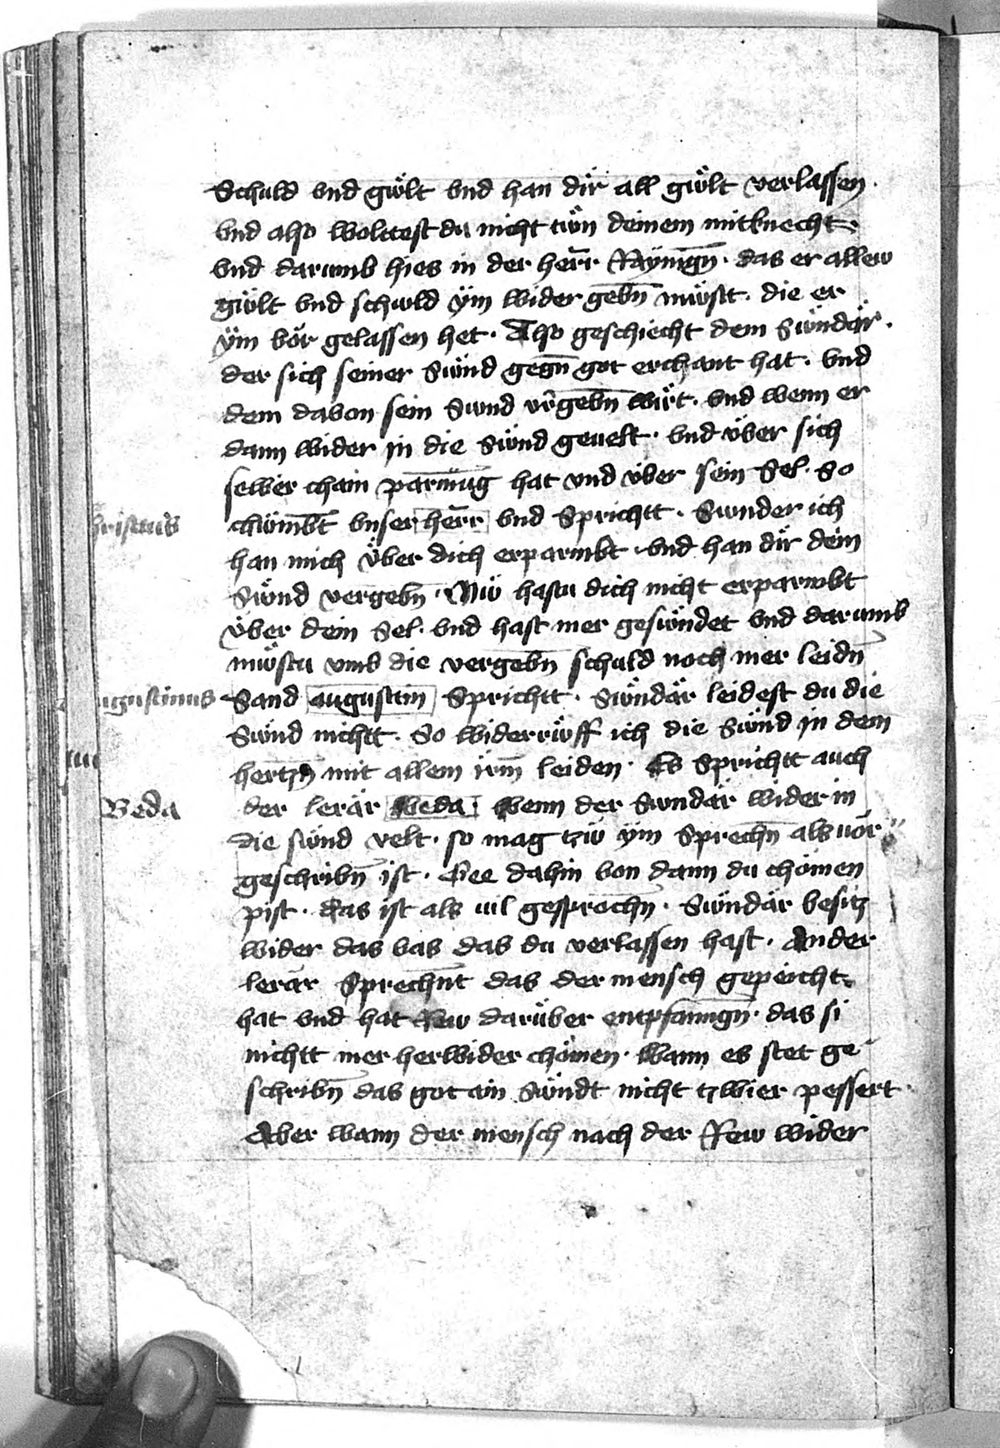 Schuld vnd gwͤlt vnd han dir all gwͤlt verlassen ·
vnd also woltest du nicht tuͦn deinem mitknecht ·
vnd darumb hies in der herr · das er allew
gwͤlt vnd schuld ẏm wider gebn̄ muͤst · die er
ẏm vor gelassen het · Also geschiecht dem Suͤndaͤr ·
der sich seiner Suͤnd gegn̄ got erchant hat · vnd
dem dauon sein Sund vergebn̄ wirt · vnd wenn er
dann wider in die Suͤnd geuelt · vnd vͤber sich
selber chain parmūg hat vnd vͤber sein Sel · So
chuͤmbt vnser herr vnd Sprichtt · Sunder ich
han mich vͤber dich erparmbt vnd han dir dein
Suͤnd vergebn̄ · Nw hastu dich nicht erparmbt
vͤber dein Sel · vnd hast mer gesuͤndet vnd darumb
muͤstu vmb die vergebn̄ schuld noch mer leidn̄
Christus
Sand augustin Sprichtt · Suͤndaͤr leidest du die
Augustinus
Suͤnd nichtt · So widerruͤff ich die Suͤnd in dem
hertzn̄ mit allem irm̄ leiden · Es Sprichtt auch
der leraͤr Beda Wenn der Sundaͤr wider in
Beda
die suͤnd velt · so mag tzw ẏm Sprechn̄ als vor
geschribn̄ ist · Gee dahin von dann du chomen
pist · das ist als uil gesprochn̄ · Suͤndaͤr besitz
wider das vas das du verlassen hast · Ander
leraͤr Sprechn̄t das der mensch gepeicht
hat vnd hat Rew daruͤber enpfanngn̄ · das si
nichtt mer herwider choͤmen · Wann es stet ge
schribn̄ das got ain Suͤndt nicht tzwier pessert ·
Aber wann der mensch nach der Rew wider